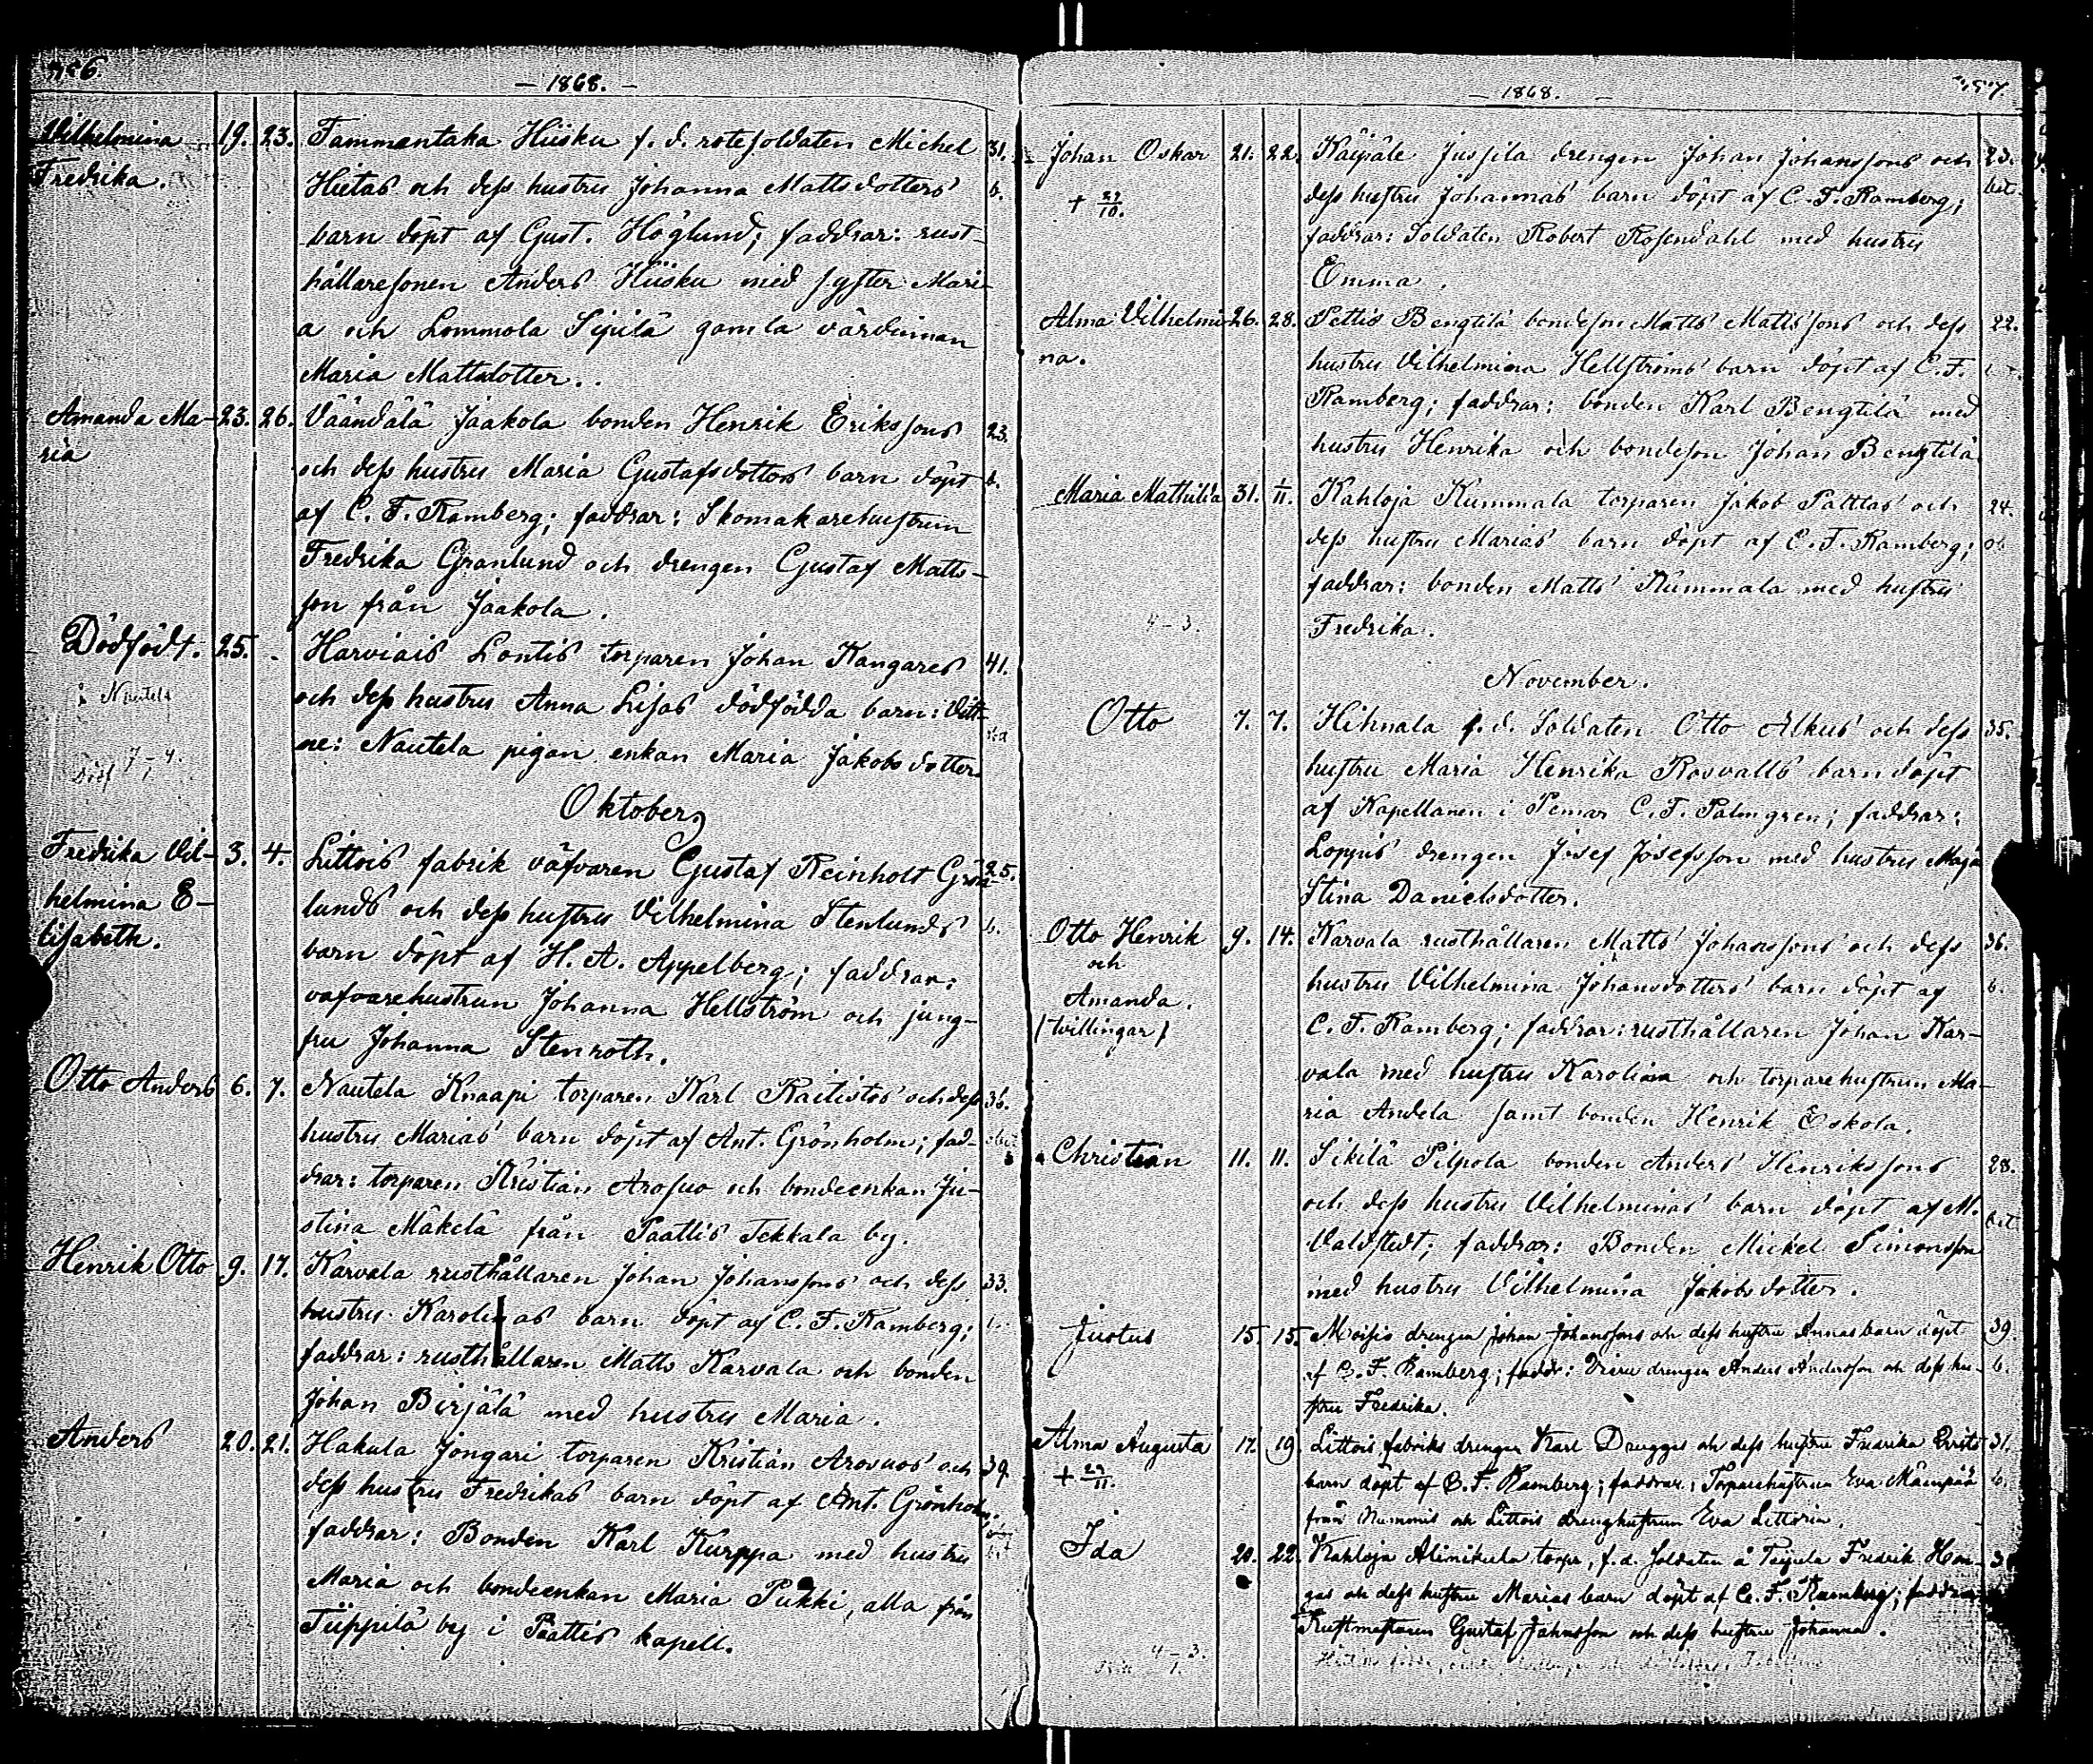 — 1868. —
Vilhelmina 19. 23. Tammentaka Hiisku f. d. rotesoldaten Michel 31.
Fredrika. Hietas och dess hustru Johanna Mattsdotters b.
barn döpt af Gust. Höglund; faddrar: rust-
hållaresonen Anders Hiisku med syster Mari-
a och Lommola Sipilä gamla värdinnan
Maria Mattsdotter.
Amanda Ma- 23. 26. Väändälä Jaakola bonden Henrik Erikssons 23.
ria och dess hustru Maria Gustafsdotters barn döpt b.
af C. F. Ramberg; faddrar: Skomakarehustrun
Fredrika Granlund och drengen Gustaf Matts-
son från Jaakola.
Dödfödt. 25. Harviais Lontis torparen Johan Kangares 41.
i Nautela och dess hustru Anna Lisas dödfödda barn: Vitt-
7–4. ne: Nautela pigan enkan Maria Jakobsdotter.
Oktober
Fredrika Vil- 3. 4. Littois fabrik väfvaren Gustaf Reinholt Grön- 25.
helmina E- lunds och dess hustru Vilhelmina Stenlunds b.
lisabeth. barn döpt af H. A. Appelberg; faddrar:
väfvarehustrun Johanna Hellström och jung-
fru Johanna Stenroth.
Otto Anders 6. 7. Nautela Knaapi torparen Karl Raitistos och dess 36.
hustru Marias barn döpt af Ant. Grönholm; fad-
drar: torparen Kristian Arosuo och bondeenkan Ju-
stina Mäkelä från Paattis Tekkala by.
Henrik Otto 9. 17. Karvala rusthållaren Johan Johanssons och dess 33.
hustru Karolinas barn döpt af C. F. Ramberg; b.
faddrar: rusthållaren Matts Karvala och bonden
Johan Birjälä med hustru Maria.
Anders 20. 21. Hakula Jongari torparen Kristian Arosuos och 39.
dess hustru Fredrikas barn döpt af Ant. Grönholm
faddrar: Bonden Karl Kurppa med hustru
Maria och bondeenkan Maria Pukki, alla från
Tiippilä by i Paattis kapell.
— 1868. —
Johan Oskar 21. 22. Kaipale Jussila drengen Johan Johanssons och 23.
+ 29/10. dess hustru Johannas barn döpt af C. F. Ramberg; bet.
faddrar: Soldaten Robert Rosendahl med hustru
Emma.
Alma Vilhelmi- 26. 28. Pettis Bengtilä bondeson Matts Mattssons och dess 22.
na. hustru Vilhelmina Hellströms barn döpt af C. F.
Ramberg; faddrar: bonden Karl Bengtilä med
hustru Henrika och bondeson Johan Bengtilä.
Maria Mathilda 31. 1/11. Kahloja Kummala torparen Jakob Palttas och 24.
dess hustru Marias barn döpt af C. F. Ramberg; ob
faddrar: bonden Matts Kummala med hustru
4–3. Fredrika.
November.
Otto 7. 7. Hihnala f. d. Soldaten Otto Alkus och dess 35.
hustru Maria Henrika Rosvalls barn döpt
af Kapellanen i Pemar C. F. Palmgren; faddrar:
Loppis drengen Josef Josefsson med hustru Maja
Stina Danielsdotter.
Otto Henrik 9. 14. Karvala rusthållaren Matts Johanssons och dess 36.
och hustru Vilhelmina Johansdotters barn döpt af b.
Amanda. C. F. Ramberg; faddrar: rusthållaren Johan Kar-
(tvillingar) vala med hustru Karolina och torparehustrun Ma-
ria Andela samt bonden Henrik Eskola.
Christian 11. 11. Sikilä Pilpola bonden Anders Henrikssons 28.
och dess hustru Vilhelminas barn döpt af M. bet.
Valdstedt; faddrar: Bonden Mickel Simonsson
med hustru Vilhelmina Jakobsdotter.
Justus 15. 15. Moisio drengen Johan Johanssons och dess hustru Annas barn döpt 39.
af C. F. Ramberg; faddr: drengen Anders Andersson och dess hu- b.
stru Fredrika.
Alma Augusta 17. 19. Littois fabriks drengen Karl Drugges och dess hustru Fredrika 31.
+ 29/11. barn döpt af C. F. Ramberg; faddrar: Torparehustrun Eva Mäenpää b.
från Nummis och Littois drenghustrun Eva Littorin.
Ida 20. 22. Kahloja Alinikula torpr, f. d. Soldaten å Fredrik Han-
gas och dess hustru Marias barn döpt af C. F. Ramberg; faddrar
Gustaf Johansson och dess hustru Johanna.
4–3.